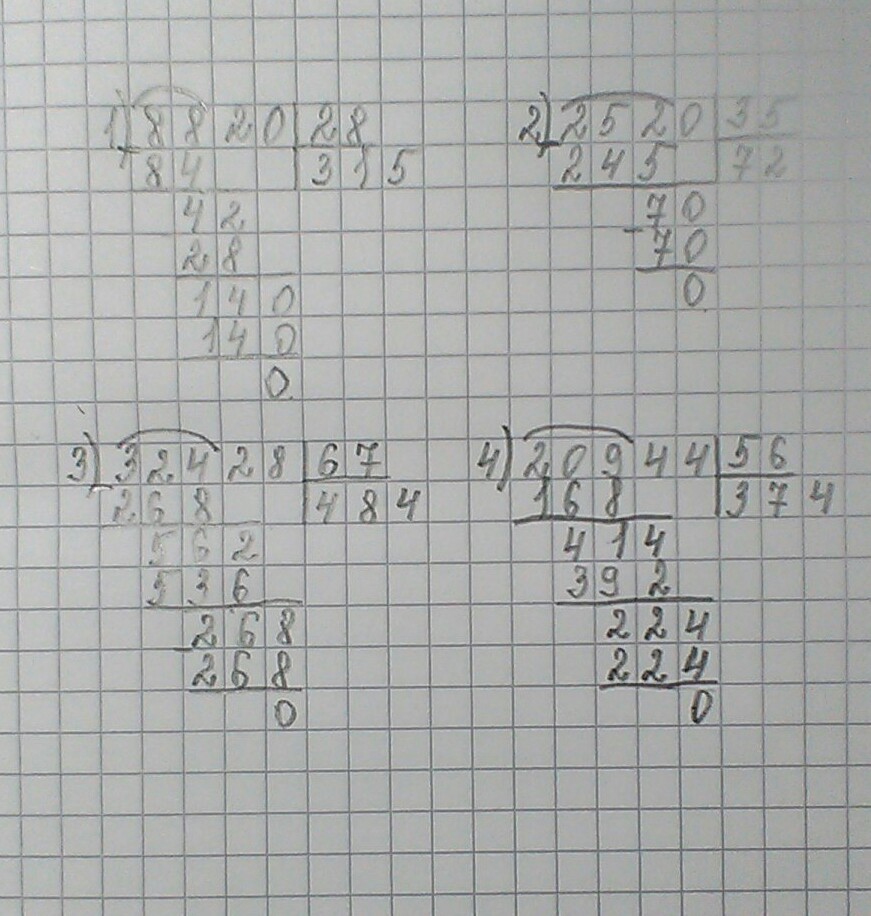 1) 8820 28
84 315
42
28
140
140
0
2) 2520 35
245 72
70
70
0
3) 32428 67
268 484
562
536
268
268
0
4) 20944 56
168 374
414
392
224
224
0